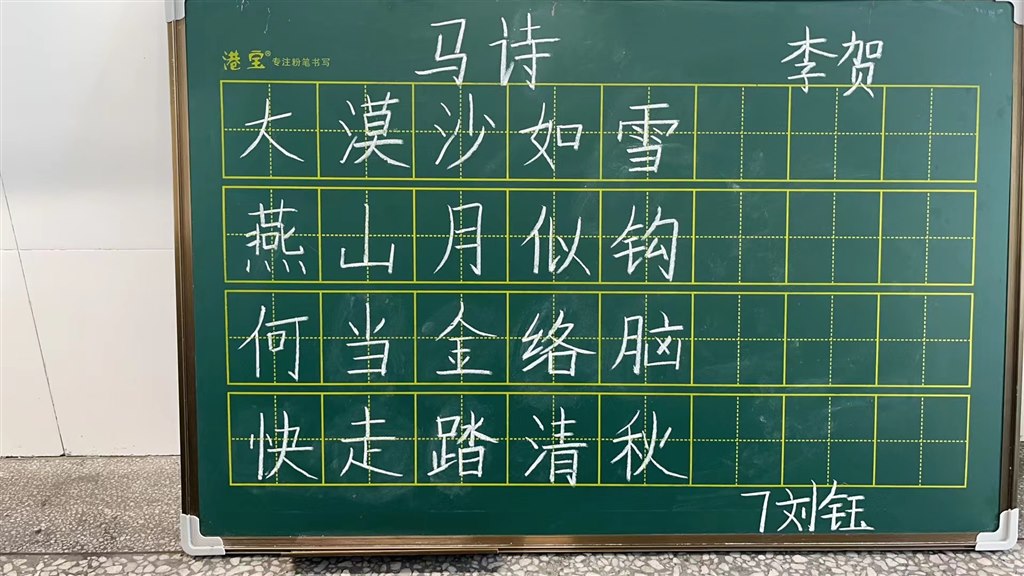 港宝® 专注粉笔书写
马诗
李贺
大漠沙如雪
燕山月似钩
何当金络脑
快走踏清秋
7刘钰